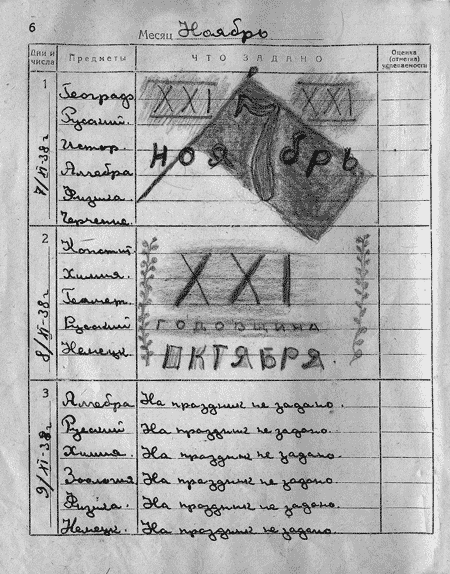 6
Месяц Ноябрь
Дни и числа Предметы ЧТО ЗАДАНО Оценка (отметка) успеваемости
1
7/XI-38 г
Географ
Русский.
Истор.
Алгебра
Физика
Черчение
XXI XXI
7
НОЯБРЬ
2
8/XI-38 г
Констит.
Химия.
Геометр.
Русский
Немецк.
XXI
ГОДОВЩИНА
ОКТЯБРЯ.
3
9/XI-38 г
Алгебра На праздник не задано.
Русский На праздник не задано.
Химия. На праздник не задано.
Зоология На праздник не задано.
Физика. На праздник не задано.
Немецк. На праздник не задано.